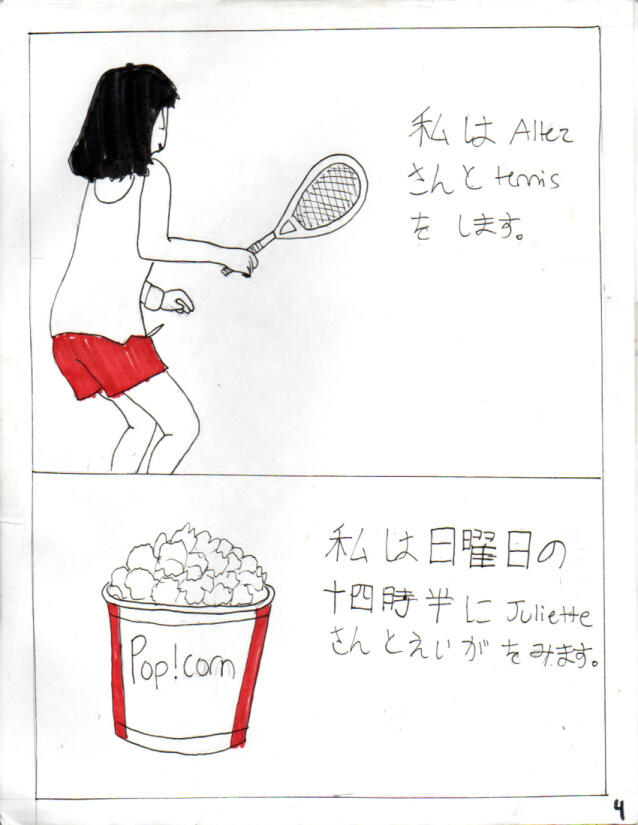 私は Altez
さんと tennis
を します。
私は日曜日の
十四時半に Juliette
さんとえいがをみます。
Pop!corn
4